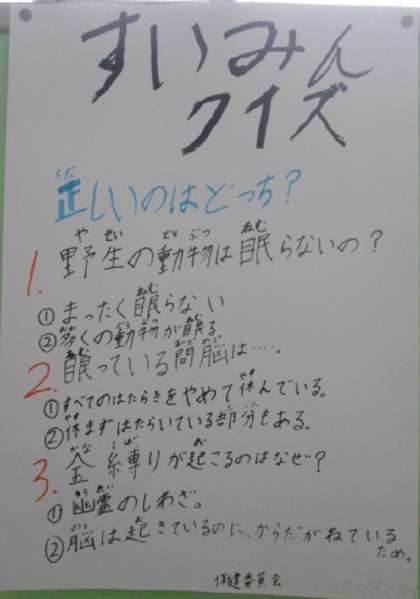 すいみん
クイズ
正しいのはどっち?
1. 野生の動物は眠らないの?
①まったく眠らない
②多くの動物が眠る。
2. 眠っている間脳は‥‥。
①すべてのはたらきをやめて休んでいる。
②休まずはたらいている部分もある。
3. 金縛りが起こるのはなぜ?
①幽霊のしわざ。
②脳は起きているのに、からだがねている
ため。
保健委員会